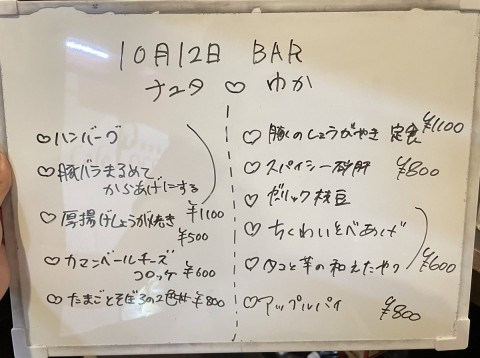 10月12日 BAR
ナユタ ♡ ゆか
♡ハンバーグ
♡豚バラまるめて
からあげにする
¥1100
♡厚揚げしょうが焼き
¥500
♡カマンベールチーズ
コロッケ ¥600
♡たまごとそぼろの2色丼 ¥800
♡豚のしょうがやき 定食 ¥1100
♡スパイシー砂肝 ¥800
♡ガーリック枝豆
♡ちくわいそべあげ
♡タコと芋の和えたやつ ¥600
♡アップルパイ ¥800